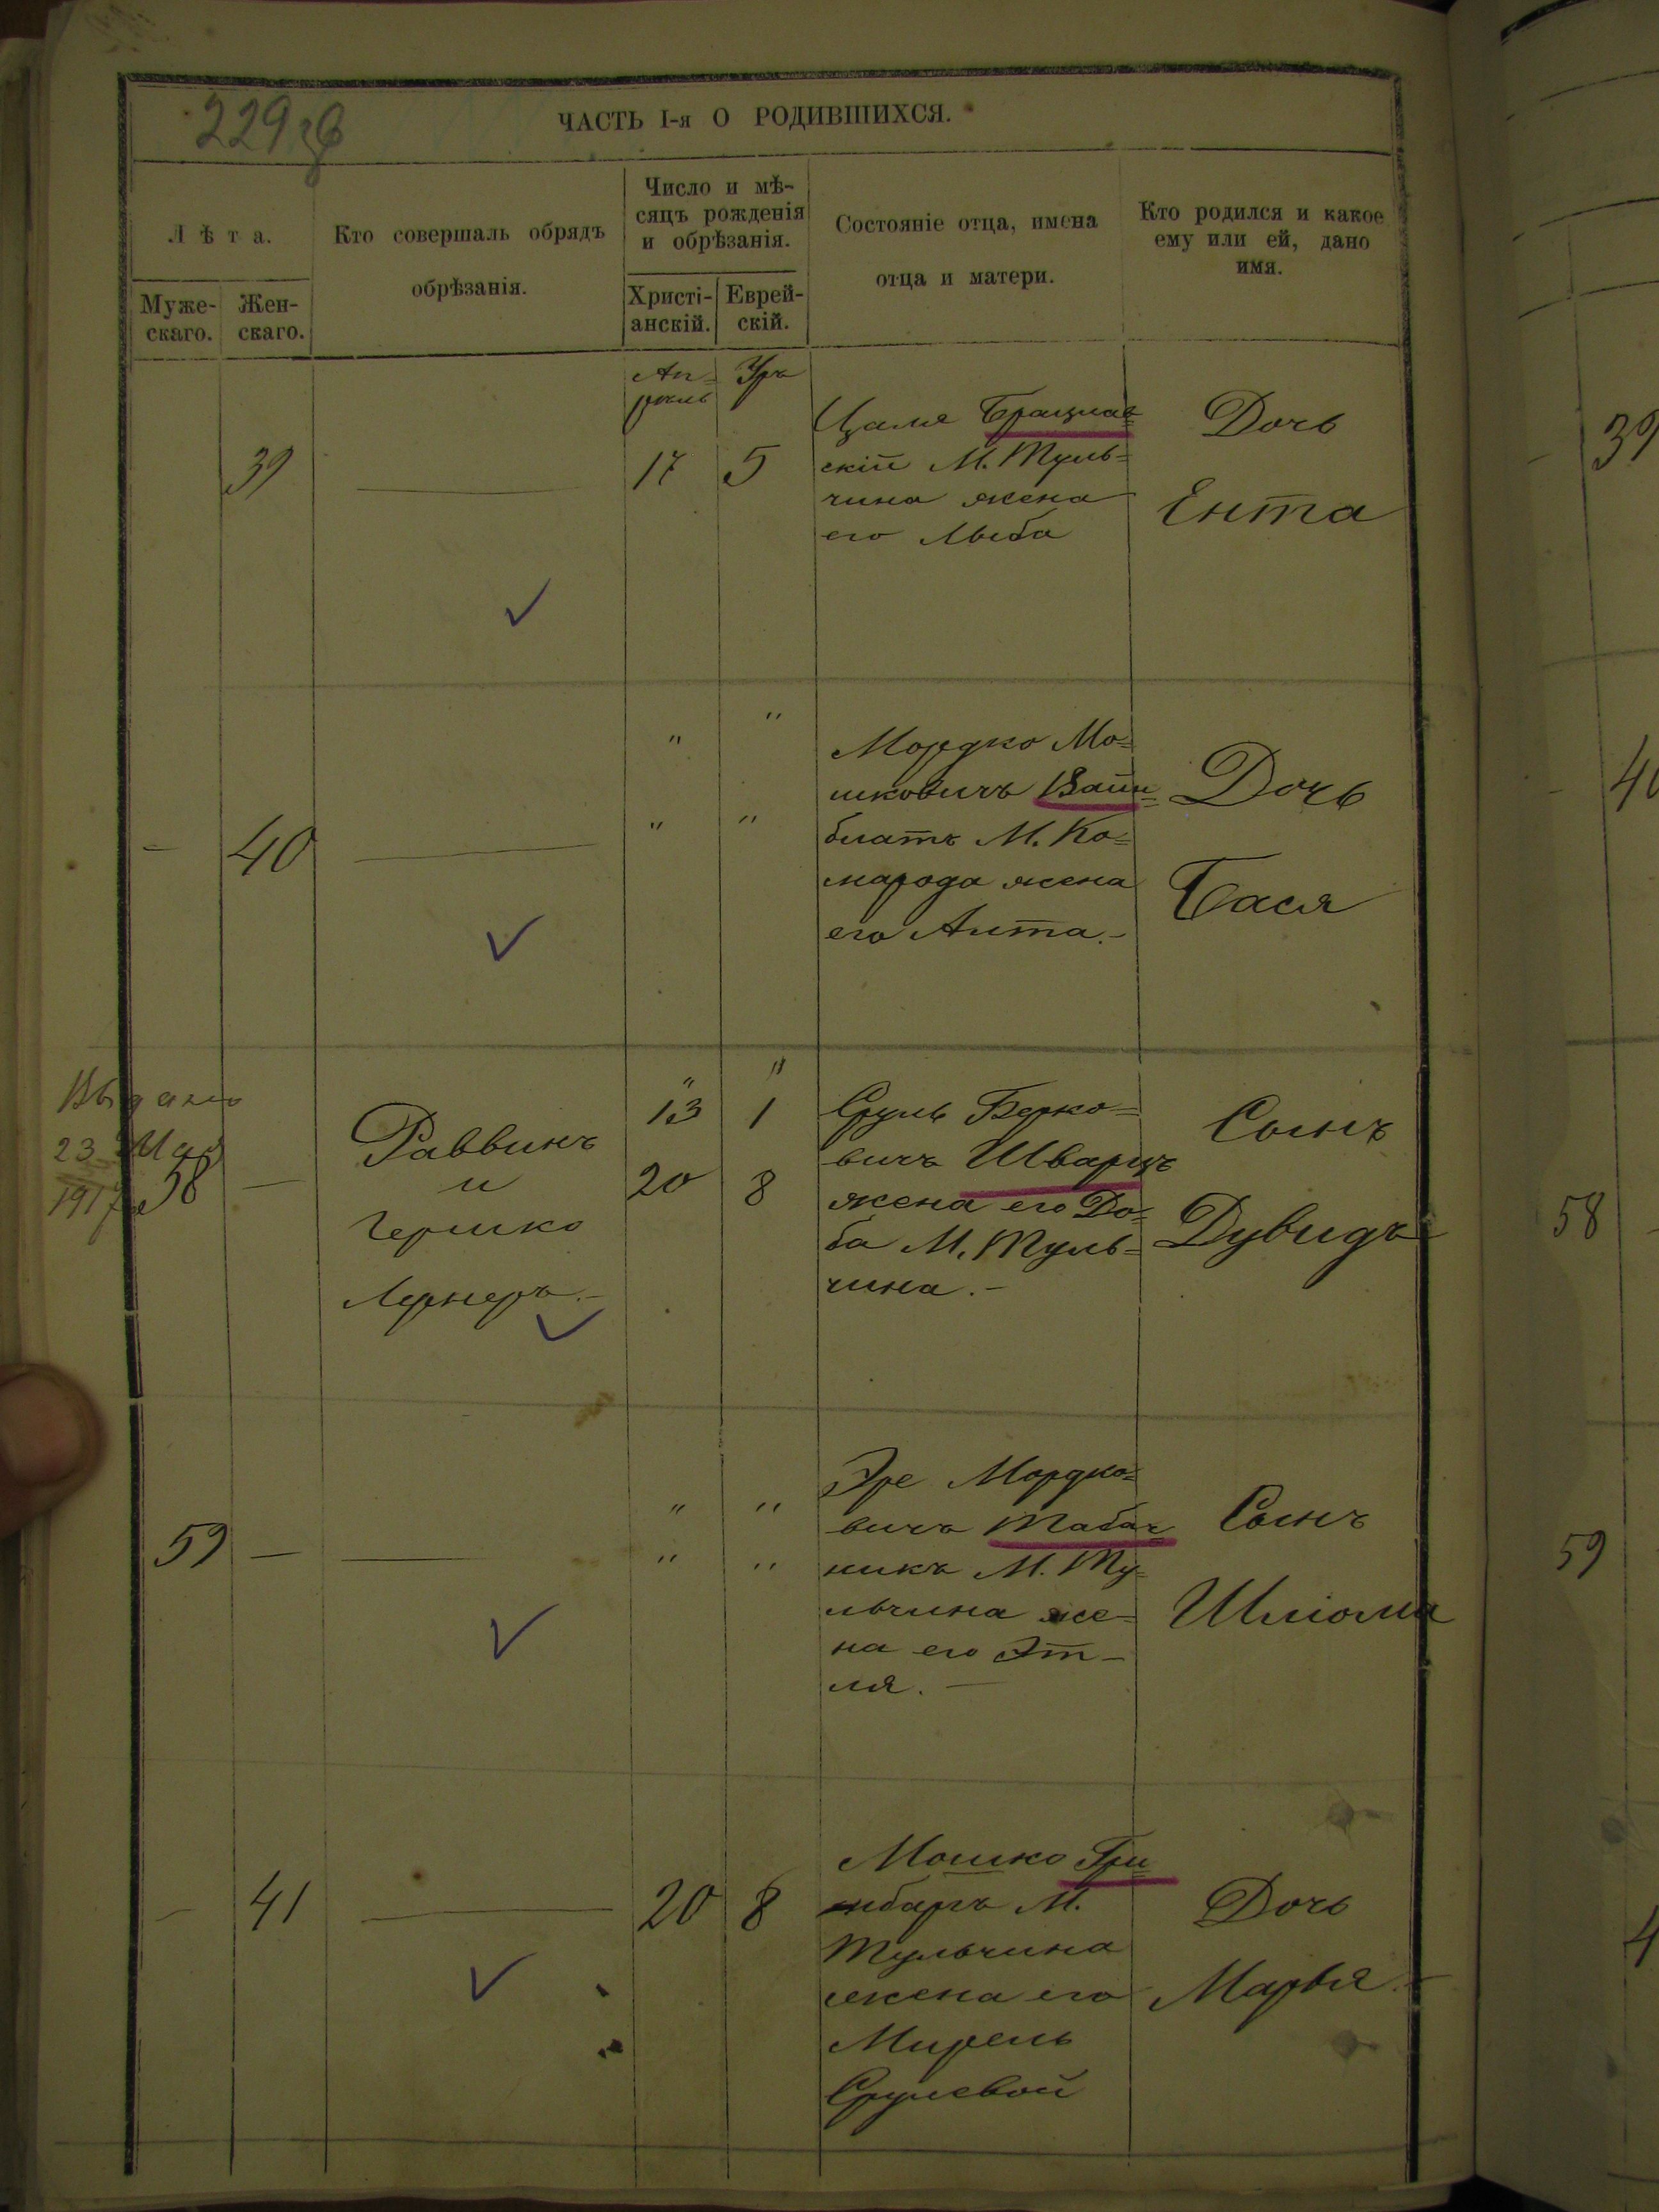 229 зв
ЧАСТЬ I-я О РОДИВШИХСЯ.
Лѣта.
Муже-
скаго.
Жен-
скаго.
Кто совершалъ обрядъ
обрѣзанія.
Число и мѣ-
сяцъ рожденія
и обрѣзанія.
Христі-
анскій.
Еврей-
скій.
Состояніе отца, имена
отца и матери.
Кто родился и какое
ему или ей, дано
имя.
39
Ап-
рѣль
17
Іръ
5
Брацлав=
скій М. Туль=
чина жена
его Либа
Дочь
Ента
-
40
"
"
"
"
Мордко Мо=
шковичъ Вайн=
блатъ М. Ко=
марода жена
его Анта.-
Дочь
Бася
Выдано
23 Мая
1917 г
58
Раввинъ
и
Гершко
Лернеръ.-
"
13
20
"
1
8
Сруль Берко=
вичъ Шварцъ
жена его До=
ба М. Туль=
чина.-
Сынъ
Дувидъ
59
"
"
"
"
Эре Мордко=
вичъ Табач=
никъ М. Ту=
льчина же=
на его Эт-
ля.-
Сынъ
Шліома
-
41
20
8
Мошко Гри=
нбаръ М.
Тульчина
жена его
Мирель
Срулевой
Дочь
Марья.-
39
40
58
59
4